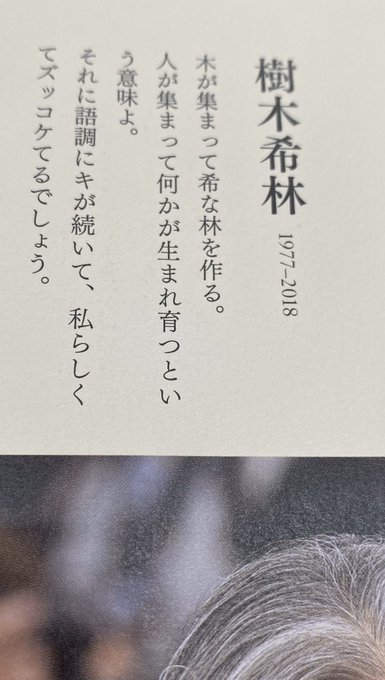 樹木希林 1977–2018
木が集まって希な林を作る。
人が集まって何かが生まれ育つとい
う意味よ。
それに語調にキが続いて、私らしく
てズッコケてるでしょう。